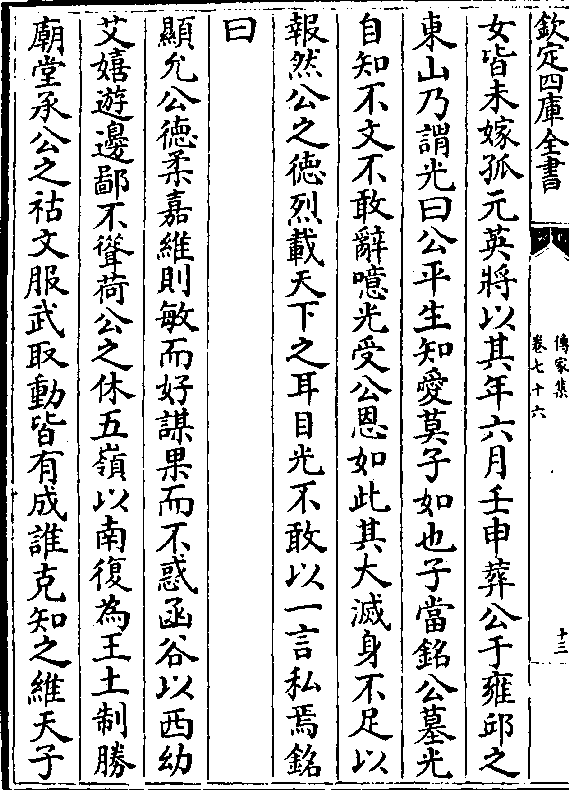 欽定四庫全書
傳家集
卷七十六
十三
女皆未嫁孤元英將以其年六月壬申葬公于雍邱之
東山乃謂光曰公平生知愛莫子如也子當銘公墓光
自知不文不敢辭噫光受公恩如此其大滅身不足以
報然公之徳烈載天下之耳目光不敢以一言私焉銘
曰
顯允公徳柔嘉維則敏而好謀果而不惑函谷以西幼
艾嬉遊邊鄙不聳荷公之休五嶺以南復為王土制勝
廟堂承公之祜文服武取動皆有成誰克知之維天子